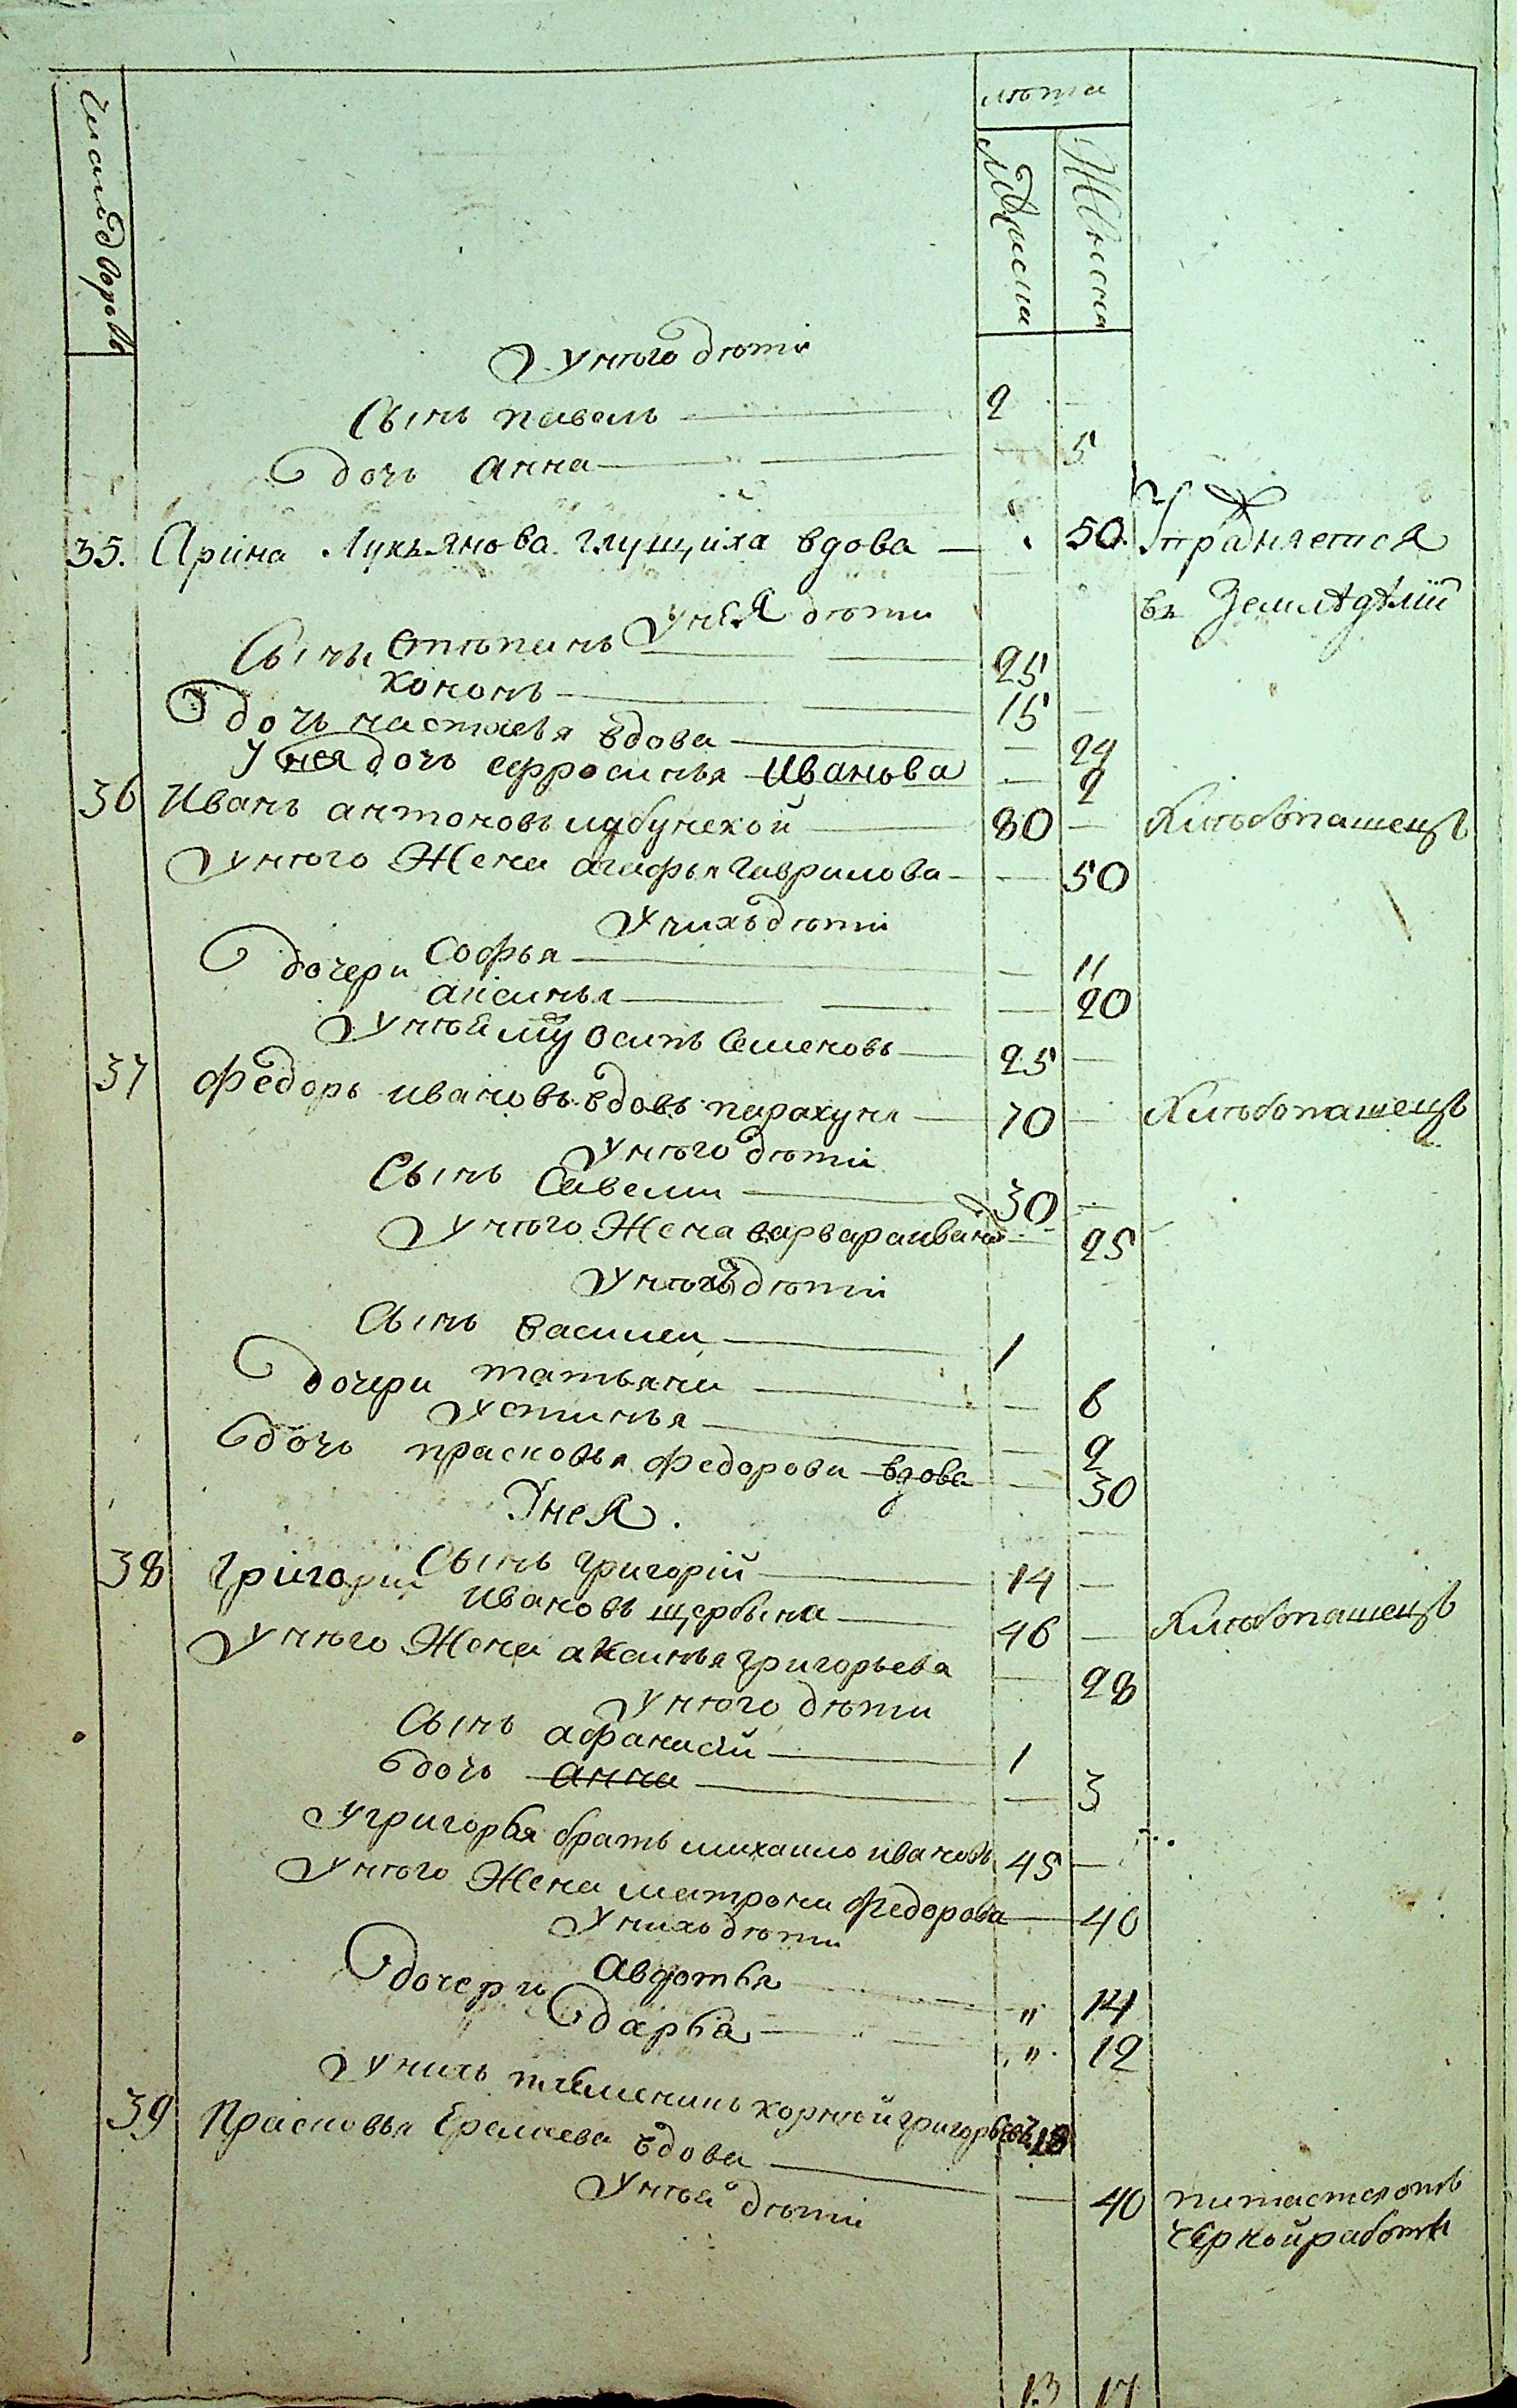 Число дворовъ
лѣта
Мужеска
Женска
У него дѣти
Сынъ павелъ — 2 —
дочь анна — — 5
35. Арина Лукьянова глущиха вдова — 50. Упражняется
въ Земледѣлiи
У нея дѣти
Сынъ Степанъ — 25
кононъ — 15 —
дочь настасья вдова — — 24
У нея дочь ефросинья Иванова — 2
36 Иванъ антоновъ — 80 — Хлѣбопашецъ
У него Жена агафья гаврилова — — 50
У нихъ дѣти
дочери Софья — — 11
аксинья — — 20
У ней осипъ Семеновъ — 25 —
37 Федоръ ивановъ вдовъ паракуня — 70 — Хлѣбопашецъ
У него дѣти
Сынъ Савели — 30 —
У него Жена варвара иванова — 25
У нихъ дѣти
Сынъ василеи — 1
дочери татьяна — — 6
устинья — — 2
дочь прасковья федорова вдова — 30
У нея.
Сынъ григорiй — 14 —
38 Григорий Ивановъ щербина — 46 — Хлѣбопашецъ
У него Жена аксинья григорьева — 28
У него дѣти
Сынъ афанасий — 1
дочь анна — — 3
У григорья братъ михаило ивановъ 45 —
У него Жена матрона Федорова — 40
У нихъ дѣти
дочери Авдотья — " 14
дарья — " 12
У нихъ племенникъ корнѣй григорьевъ 18
39 Прасковья Ермаева вдова — — 40 питается отъ
черной работы
У ней дѣти
13 17